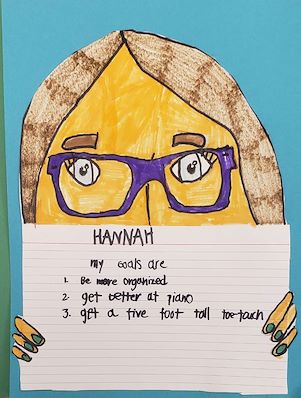 HANNAH
my Goals are
1. Be more organized
2. get better at piano
3. get a five foot tall toe-touch